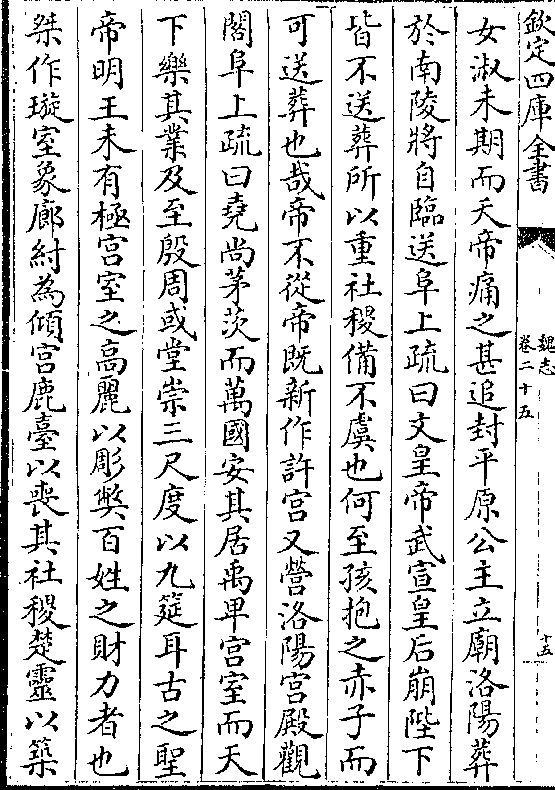 欽定四庫全書
魏志
卷二十五
十五
女淑未期而夭帝痛之甚追封平原公主立廟洛陽葬
於南陵將自臨送阜上疏曰文皇帝武宣皇后崩陛下
皆不送葬所以重社稷備不虞也何至孩抱之赤子而
可送葬也哉帝不從帝既新作許宫又營洛陽宫殿觀
閣阜上疏曰堯尚茅茨而萬國安其居禹卑宫室而天
下樂其業及至殷周或堂崇三尺度以九筵耳古之聖
帝明王未有極宫室之高麗以彫弊百姓之財力者也
桀作璇室象廊紂為傾宫鹿臺以喪其社稷楚靈以築